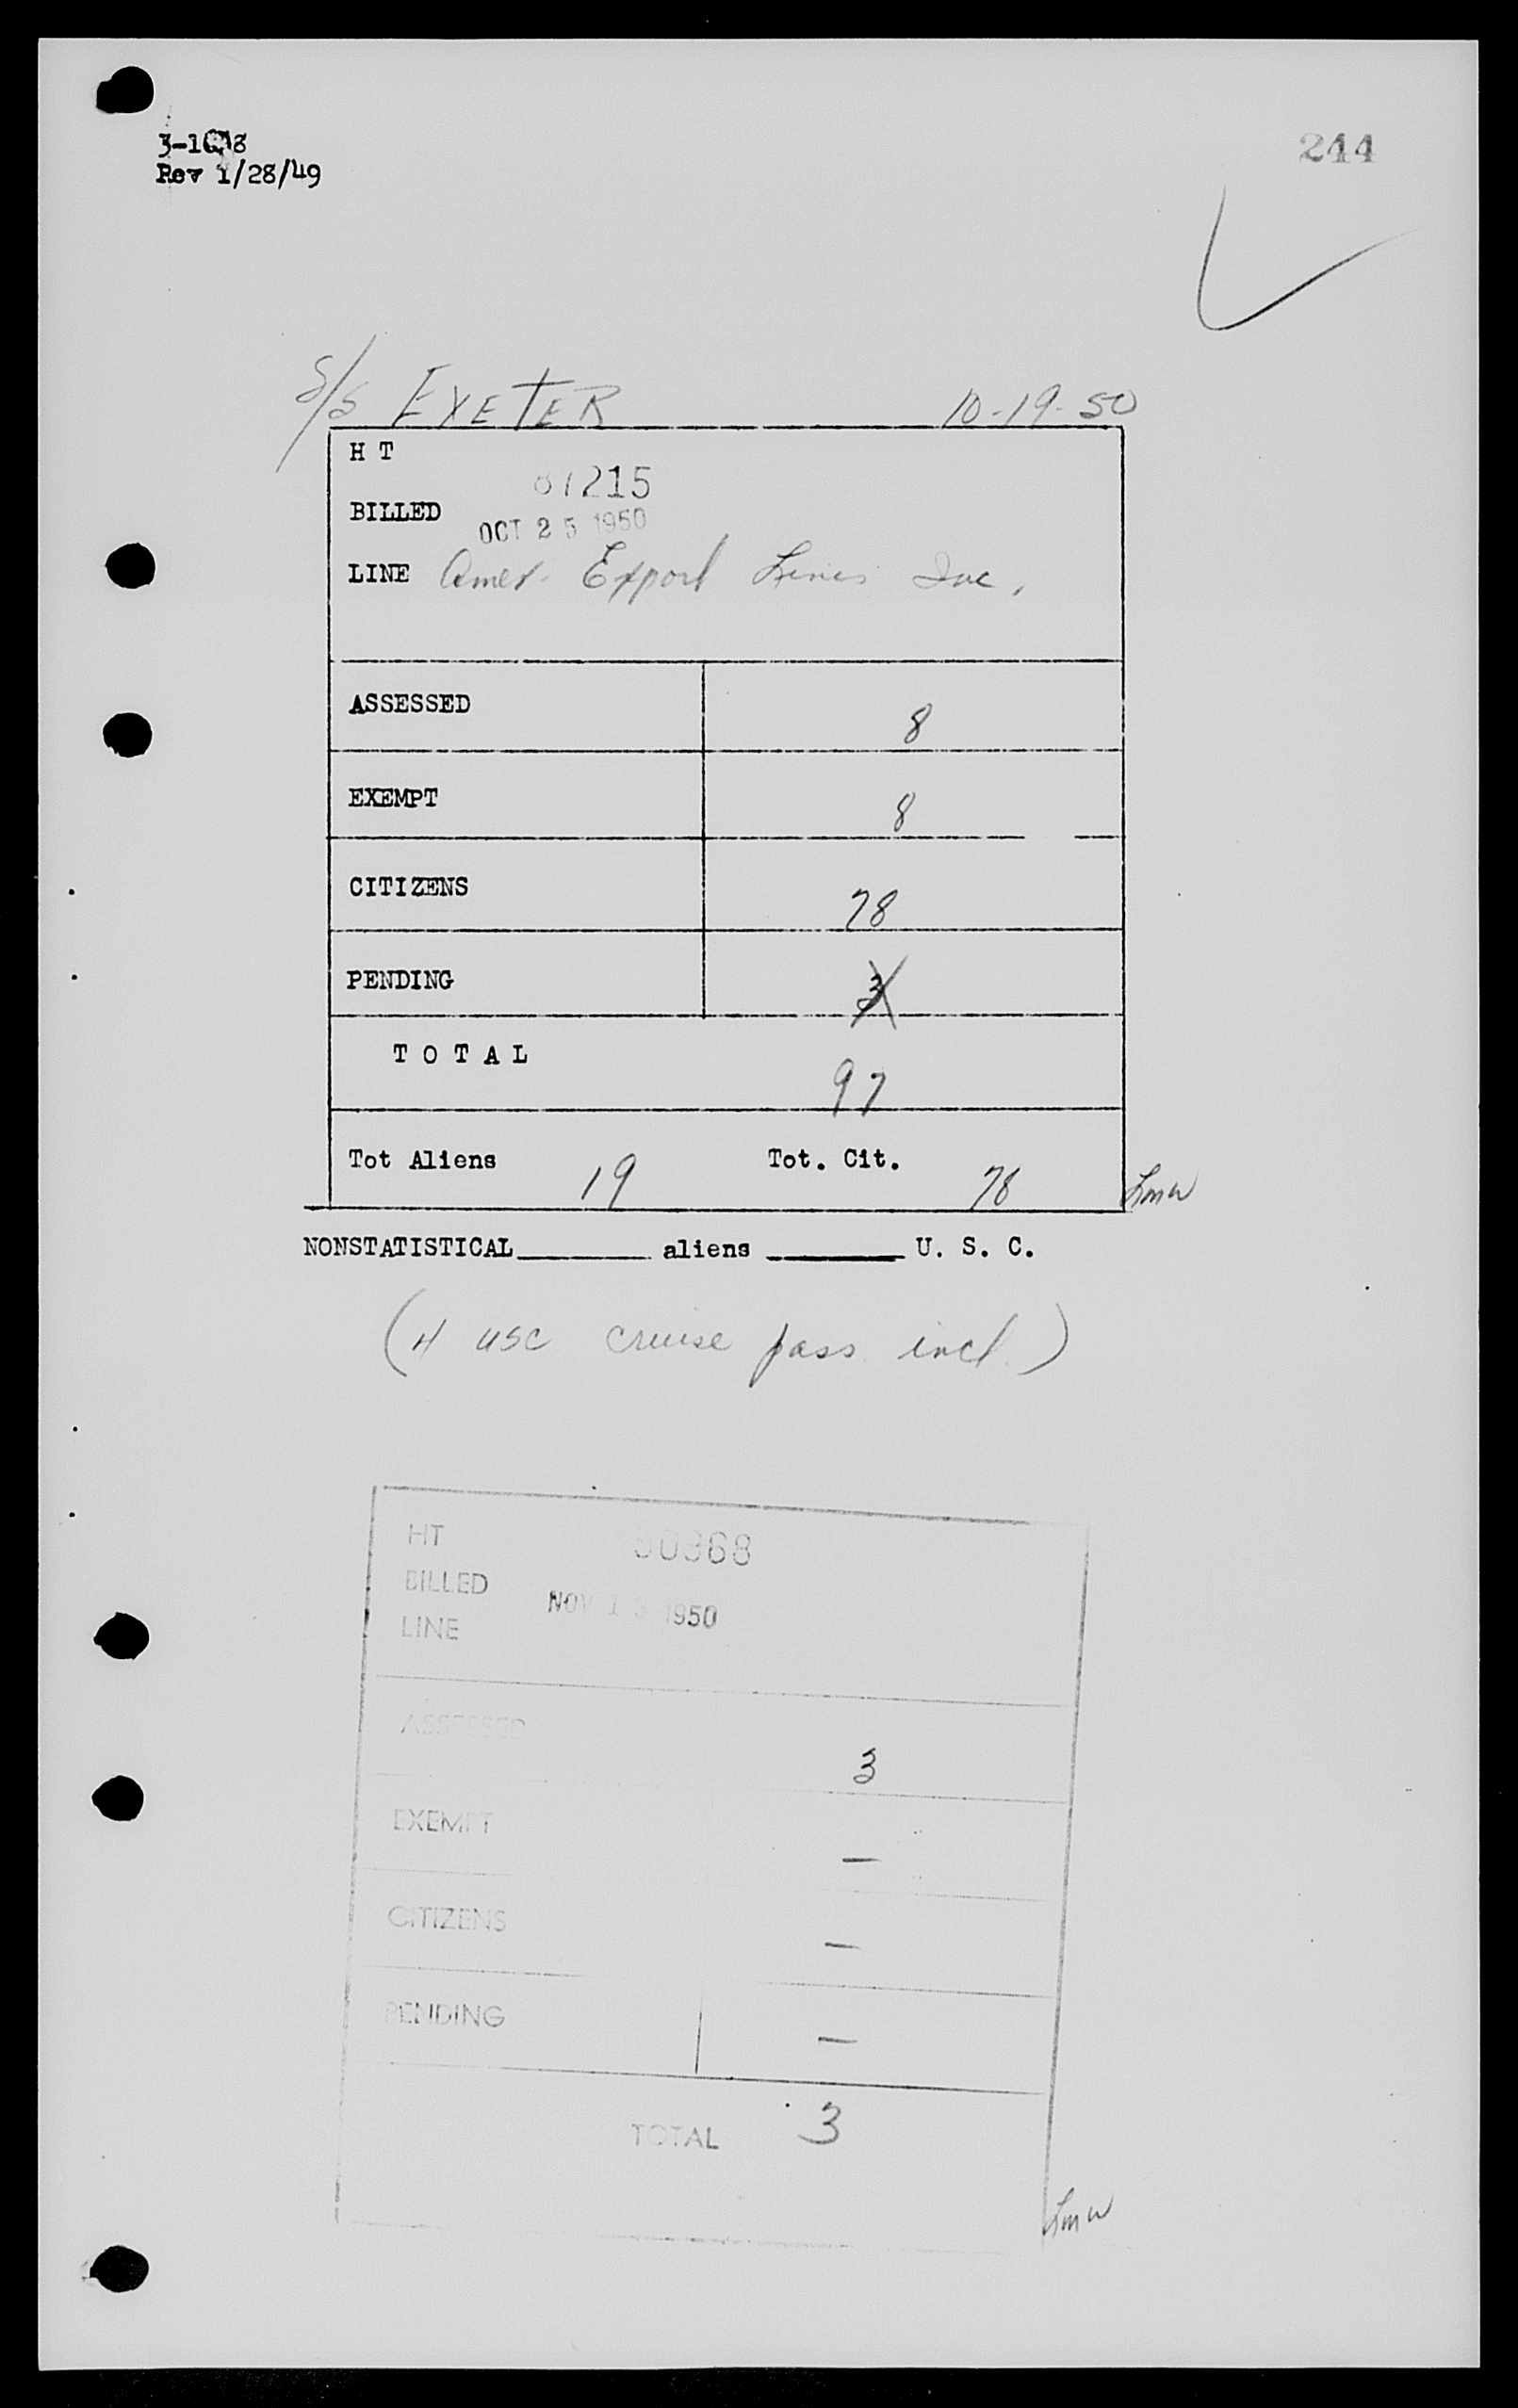 244
Rev 1/28/49
S/S EXETER 10-19-50
H T
BILLED OCT 25 1950
LINE Amer. Export Lines Inc.
ASSESSED 8
EXEMPT 8
CITIZENS 78
PENDING 3
T O T A L 97
Tot Aliens 19 Tot. Cit. 78
NONSTATISTICAL aliens U. S. C.
(4 USC cruise pass incl.)
HT
BILLED NOV 1 1950
LINE
ASSESSED 3
EXEMPT —
CITIZENS —
PENDING —
TOTAL 3